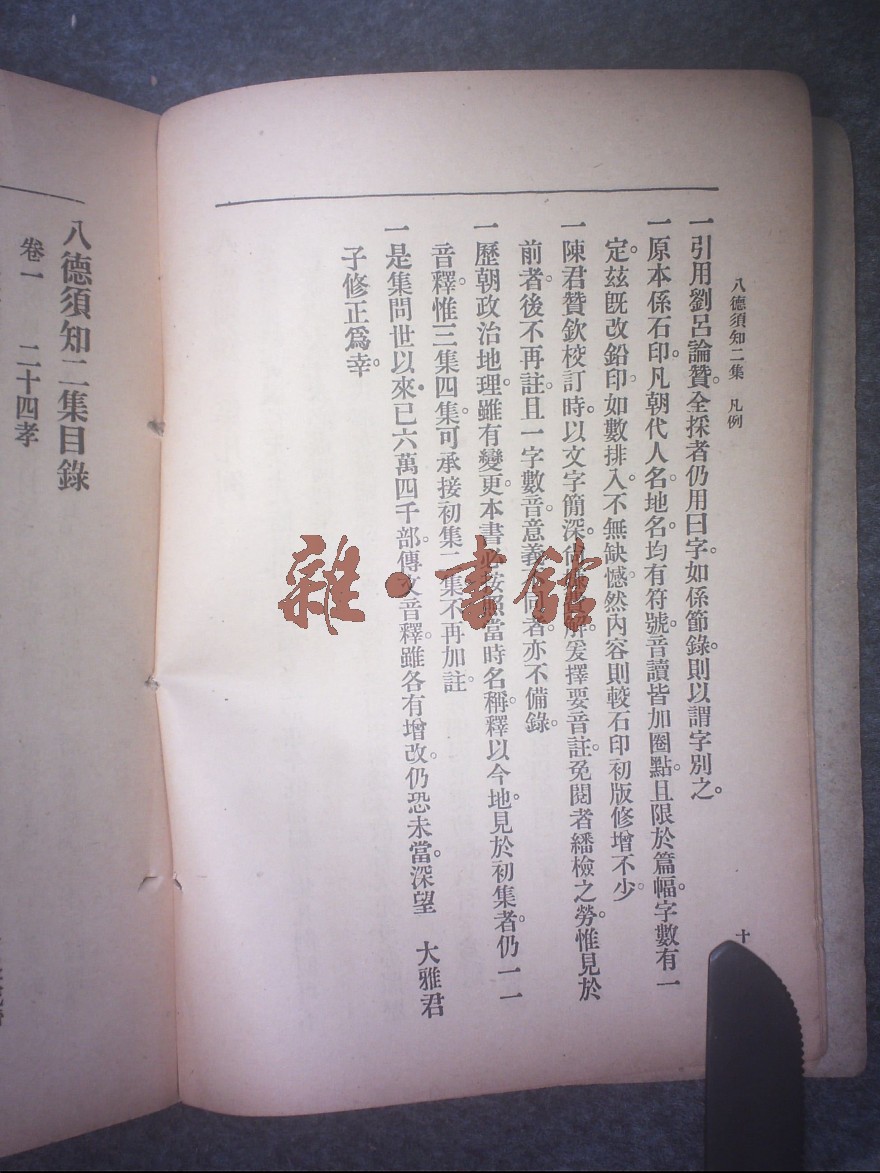 八德須知二集　凡例
十
一引用劉呂論贊。全採者仍用曰字。如係節錄。則以謂字別之。
一原本係石印。凡朝代人名。地名。均有符號。音讀皆加圈點。且限於篇幅。字數有一
定。茲旣改鉛印。如數排入。不無缺憾。然內容則較石印初版修增不少。
一陳君贊欽校訂時。以文字簡深。爰擇要音註。免閱者繙檢之勞。惟見於
前者。後不再註。且一字數音。意義不同者。亦不備錄。
一歷朝政治地理。雖有變更。本書必按照當時名稱。釋以今地。見於初集者。仍一一
音釋。惟三集四集。可承接初集二集。不再加註。
一是集問世以來。已六萬四千部。傳文音釋。雖各有增改。仍恐未當。深望　大雅君
子修正爲幸。
八德須知二集目錄
卷一　二十四孝
雜·書館